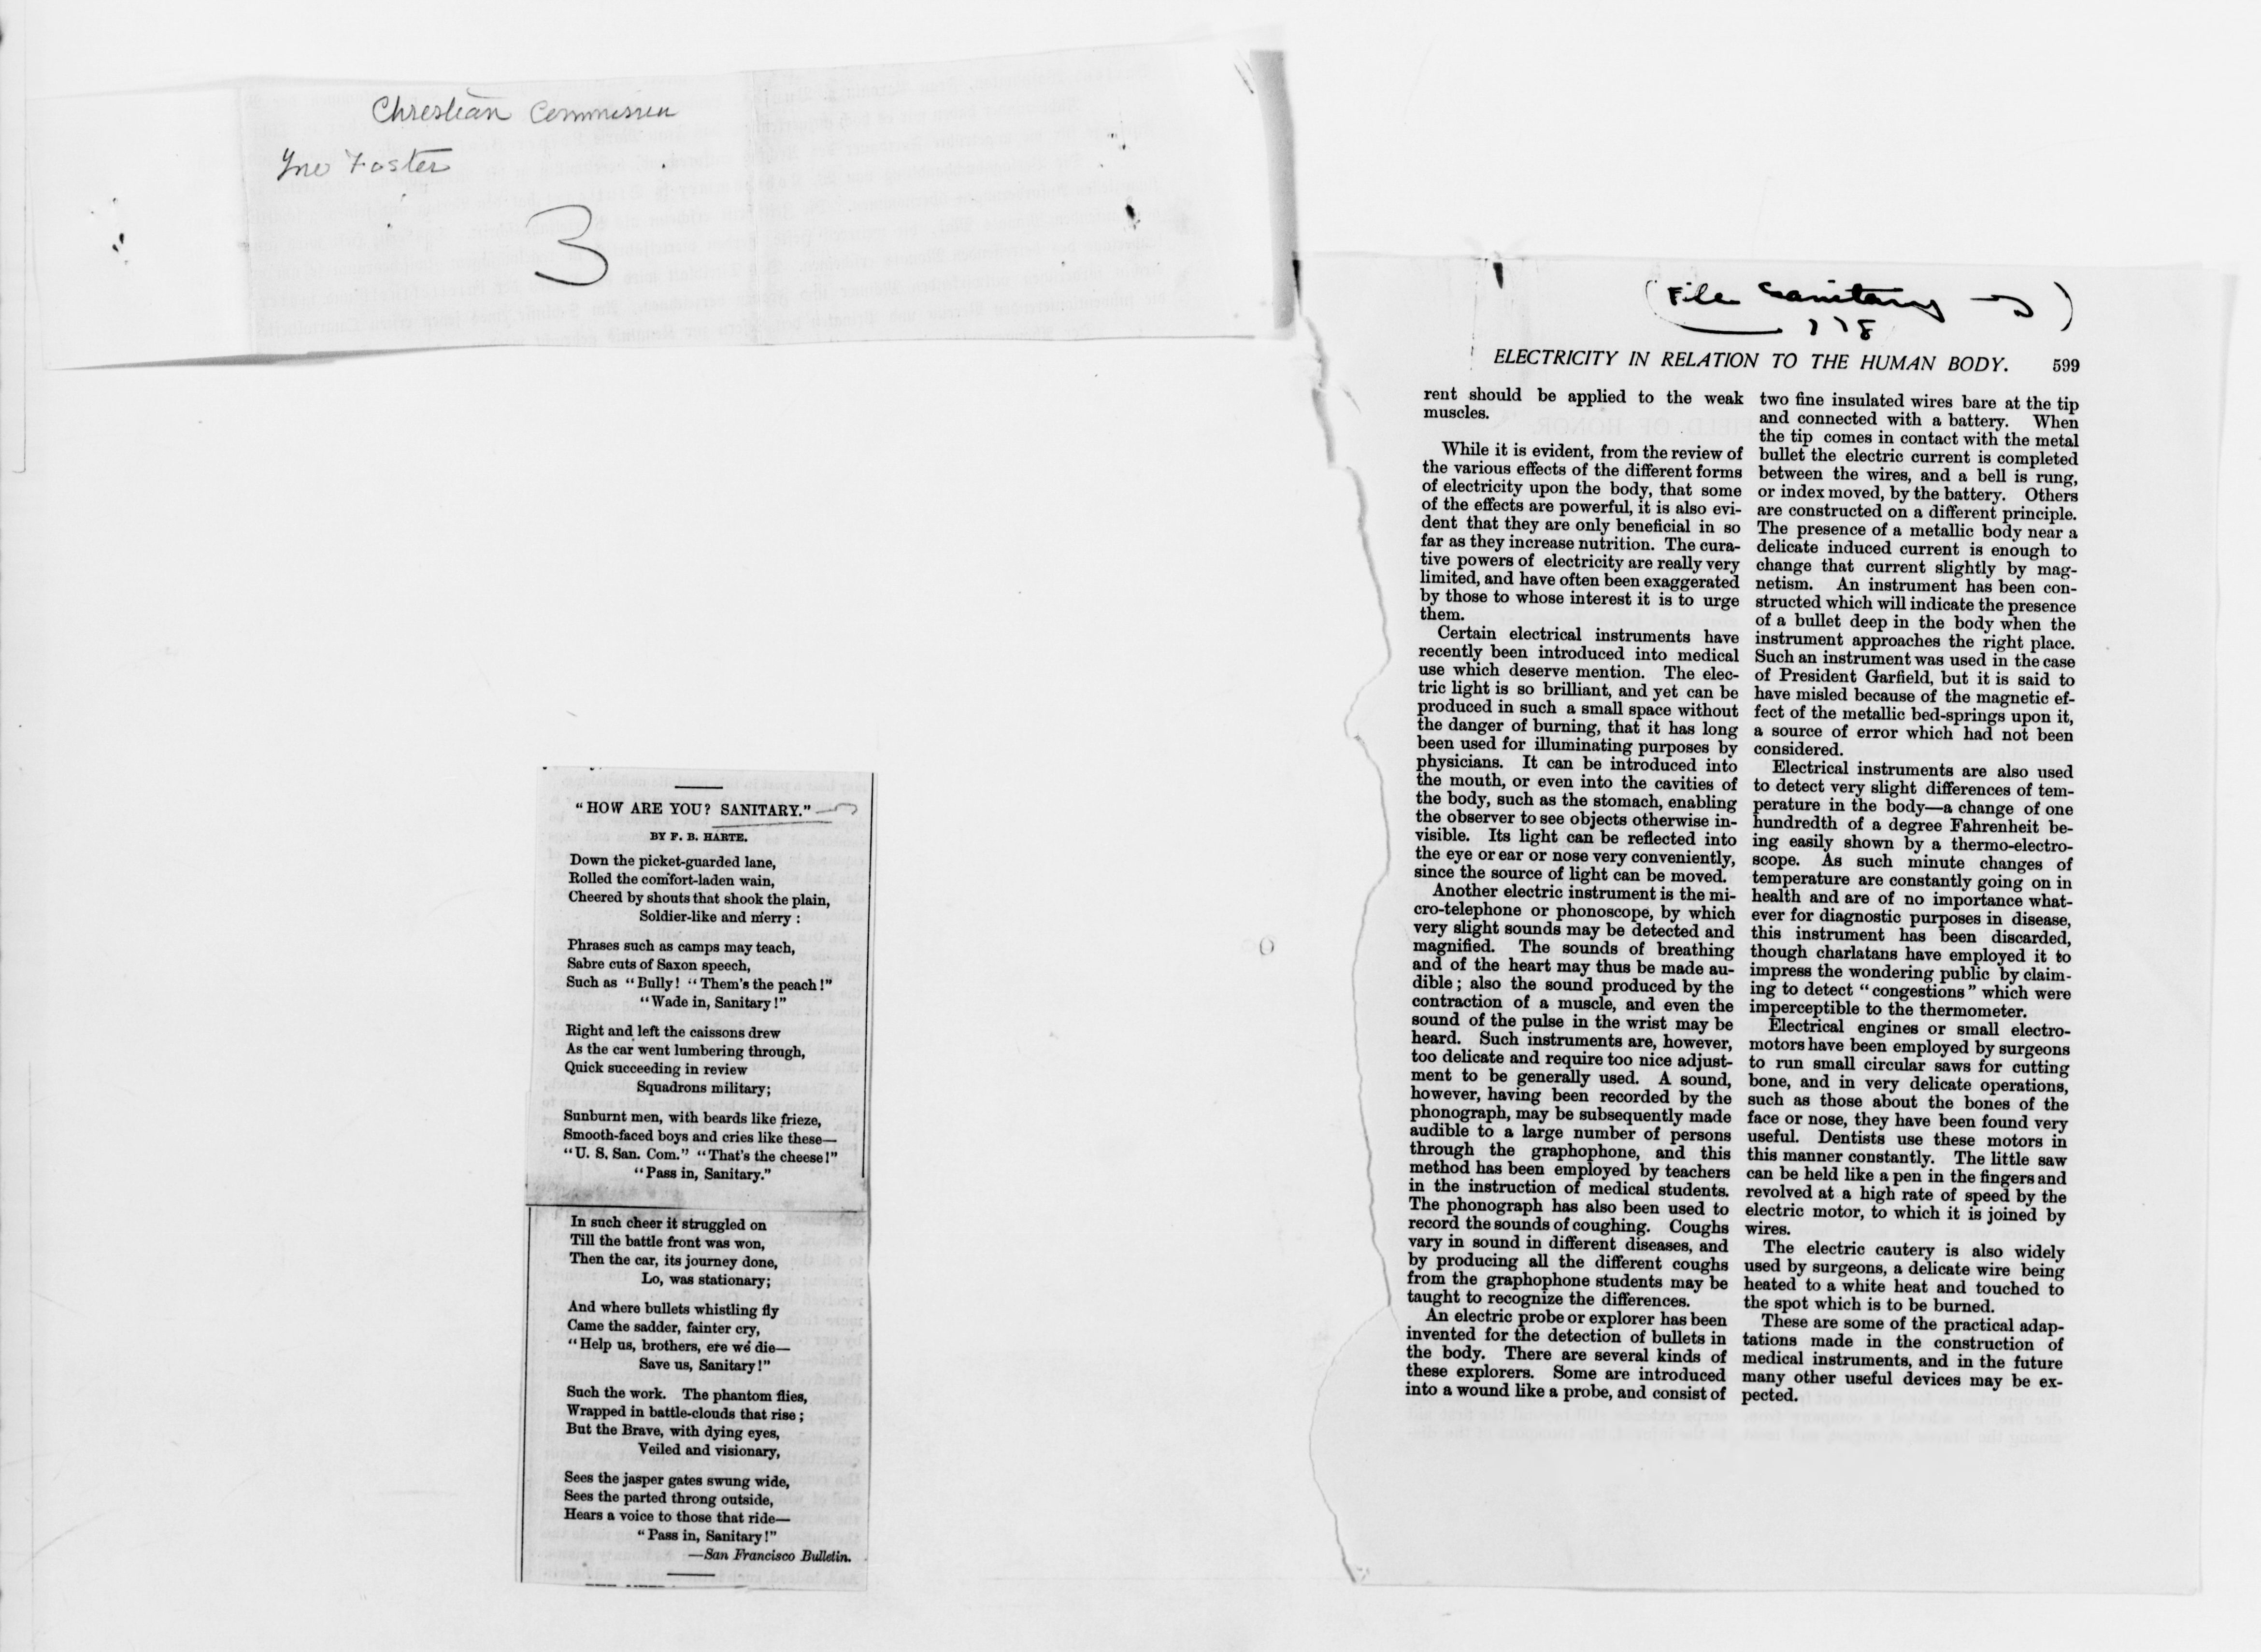 Christian Commission
Jno Foster
3
"HOW ARE YOU? SANITARY."
BY F. B. HARTE.
Down the picket-guarded lane,
Rolled the comfort-laden wain,
Cheered by shouts that shook the plain,
Soldier-like and merry :
Phrases such as camps may teach,
Sabre cuts of Saxon speech,
Such as "Bully! "Them's the peach!"
"Wade in, Sanitary!"
Right and left the caissons drew
As the car went lumbering through,
Quick succeeding in review
Squadrons military;
Sunburnt men, with beards like frieze,
Smooth-faced boys and cries like these—
"U. S. San. Com." "That's the cheese!"
"Pass in, Sanitary."
In such cheer it struggled on
Till the battle front was won,
Then the car, its journey done,
Lo, was stationary;
And where bullets whistling fly
Came the sadder, fainter cry,
"Help us, brothers, ere we die—
Save us, Sanitary!"
Such the work. The phantom flies,
Wrapped in battle-clouds that rise;
But the Brave, with dying eyes,
Veiled and visionary,
Sees the jasper gates swung wide,
Sees the parted throng outside,
Hears a voice to those that ride—
"Pass in, Sanitary!"
—San Francisco Bulletin.
(File Sanitary )
778
ELECTRICITY IN RELATION TO THE HUMAN BODY. 599
rent should be applied to the weak
muscles.
While it is evident, from the review of
the various effects of the different forms
of electricity upon the body, that some
of the effects are powerful, it is also evi-
dent that they are only beneficial in so
far as they increase nutrition. The cura-
tive powers of electricity are really very
limited, and have often been exaggerated
by those to whose interest it is to urge
them.
Certain electrical instruments have
recently been introduced into medical
use which deserve mention. The elec-
tric light is so brilliant, and yet can be
produced in such a small space without
the danger of burning, that it has long
been used for illuminating purposes by
physicians. It can be introduced into
the mouth, or even into the cavities of
the body, such as the stomach, enabling
the observer to see objects otherwise in-
visible. Its light can be reflected into
the eye or ear or nose very conveniently,
since the source of light can be moved.
Another electric instrument is the mi-
cro-telephone or phonoscope, by which
very slight sounds may be detected and
magnified. The sounds of breathing
and of the heart may thus be made au-
dible; also the sound produced by the
contraction of a muscle, and even the
sound of the pulse in the wrist may be
heard. Such instruments are, however,
too delicate and require too nice adjust-
ment to be generally used. A sound,
however, having been recorded by the
phonograph, may be subsequently made
audible to a large number of persons
through the graphophone, and this
method has been employed by teachers
in the instruction of medical students.
The phonograph has also been used to
record the sounds of coughing. Coughs
vary in sound in different diseases, and
by producing all the different coughs
from the graphophone students may be
taught to recognize the differences.
An electric probe or explorer has been
invented for the detection of bullets in
the body. There are several kinds of
these explorers. Some are introduced
into a wound like a probe, and consist of
two fine insulated wires bare at the tip
and connected with a battery. When
the tip comes in contact with the metal
bullet the electric current is completed
between the wires, and a bell is rung,
or index moved, by the battery. Others
are constructed on a different principle.
The presence of a metallic body near a
delicate induced current is enough to
change that current slightly by mag-
netism. An instrument has been con-
structed which will indicate the presence
of a bullet deep in the body when the
instrument approaches the right place.
Such an instrument was used in the case
of President Garfield, but it is said to
have misled because of the magnetic ef-
fect of the metallic bed-springs upon it,
a source of error which had not been
considered.
Electrical instruments are also used
to detect very slight differences of tem-
perature in the body—a change of one
hundredth of a degree Fahrenheit be-
ing easily shown by a thermo-electro-
scope. As such minute changes of
temperature are constantly going on in
health and are of no importance what-
ever for diagnostic purposes in disease,
this instrument has been discarded,
though charlatans have employed it to
impress the wondering public by claim-
ing to detect "congestions" which were
imperceptible to the thermometer.
Electrical engines or small electro-
motors have been employed by surgeons
to run small circular saws for cutting
bone, and in very delicate operations,
such as those about the bones of the
face or nose, they have been found very
useful. Dentists use these motors in
this manner constantly. The little saw
can be held like a pen in the fingers and
revolved at a high rate of speed by the
electric motor, to which it is joined by
wires.
The electric cautery is also widely
used by surgeons, a delicate wire being
heated to a white heat and touched to
the spot which is to be burned.
These are some of the practical adap-
tations made in the construction of
medical instruments, and in the future
many other useful devices may be ex-
pected.